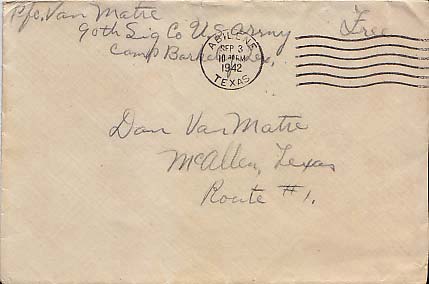 Pfc. Van Matre
90th Sig Co U.S. Army
Camp Barkeley, Tex.
Free
ABILENE
SEP 3
1942
TEXAS
Dan Van Matre
McAllen, Texas
Route #1.